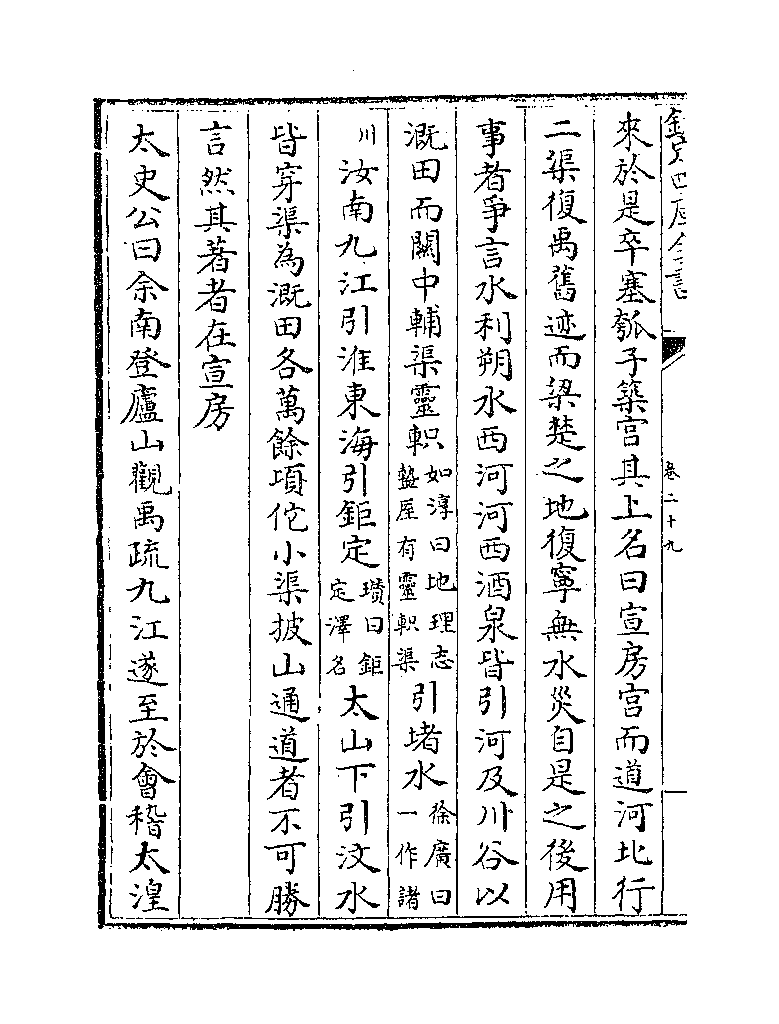 欽定四庫全書
卷二十九
來於是卒塞瓠子築宫其上名曰宣房宫而道河北行
二渠復禹舊迹而梁楚之地復寧無水災自是之後用
事者爭言水利朔水西河河西酒泉皆引河及川谷以
溉田而關中輔渠靈軹如淳曰地理志盩厔有靈軹渠引堵水徐廣曰一作諸
川汝南九江引淮東海引鉅定瓚曰鉅定澤名太山下引汶水
皆穿渠為溉田各萬餘項佗小渠披山通道者不可勝
言然其著者在宣房
太史公曰余南登廬山觀禹疏九江遂至於會稽太湟